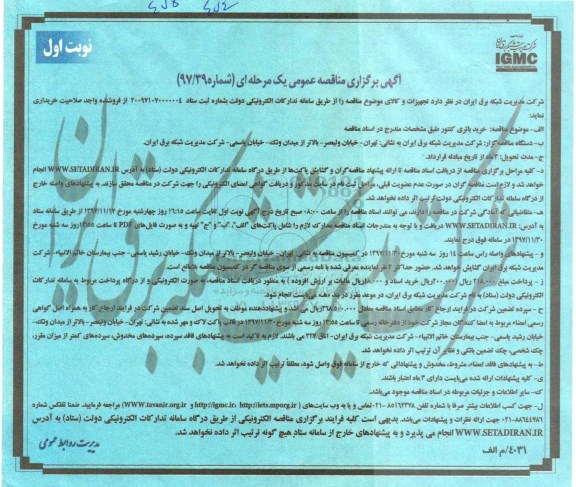 نوبت اول
IGMC
آگهی برگزاری مناقصه عمومی یک مرحله ای (شماره ۹۷/۳۹)
شرکت مدیریت شبکه برق ایران در نظر دارد تجهیزات و کالای موضوع مناقصه را از طریق سامانه تدارکات الکترونیکی دولت بشماره ثبت ستاد از فروشنده واجد صلاحیت خریداری
نماید:
الف- موضوع مناقصه: خرید باتری کنتور طبق مشخصات مندرج در اسناد مناقصه
ب- دستگاه مناقصه گزار: شرکت مدیریت شبکه برق ایران به نشانی: تهران- خیابان ولیعصر- بالاتر از میدان ونک- خیابان یاسمی- شرکت مدیریت شبکه برق ایران.
ج- مدت تحویل: ۳ ماه از تاریخ مبادله قرارداد.
د- کلیه مراحل برگزاری مناقصه از دریافت اسناد مناقصه تا ارائه پیشنهاد مناقصه گران و گشایش پاکت‌ها از طریق درگاه سامانه تدارکات الکترونیکی دولت (ستاد) به آدرس WWW.SETADIRAN.IR انجام
خواهد شد و لازم است مناقصه گران در صورت عدم عضویت قبلی، مراحل ثبت نام در سایت مذکور و دریافت گواهی امضای الکترونیکی را جهت شرکت در مناقصه محقق سازند. به پیشنهادهای واصله خارج
از درگاه سامانه تدارکات الکترونیکی دولت ترتیب اثر داده نخواهد شد.
ه- متقاضیانی که آمادگی شرکت در مناقصه را دارند، می توانند اسناد مناقصه را از ساعت ۰۸:۰۰ صبح تاریخ درج آگهی نوبت اول لغایت ساعت ۱۶:۱۵ روز چهارشنبه مورخ ۱۳۹۷/۱۱/۱۷ از طریق سامانه ستاد
به آدرس WWW.SETADIRAN.IR دریافت و با توجه به مندرجات اسناد مناقصه مدارک لازم را شامل پاکت‌های "الف"، "ب" و "ج" تهیه و به صورت فایل‌های PDF تا ساعت ۱۳:۵۵ روز سه شنبه مورخ
۱۳۹۷/۱۱/۳۰ در سامانه فوق درج نمایند.
و- پیشنهادهای واصله راس ساعت ۱۴ روز سه شنبه مورخ ۱۳۹۷/۱۱/۳۰ در کمیسیون مناقصه به نشانی: تهران- خیابان ولیعصر- بالاتر از میدان ونک- خیابان رشید یاسمی- جنب بیمارستان خاتم الانبیاء- شرکت
مدیریت شبکه برق ایران گشایش خواهد شد. حضور حداکثر نماینده معرفی شده با نامه رسمی از سوی مناقصه گر در کمیسیون مناقصه بلامانع است.
ز- پرداخت مبلغ ریال خرید اسناد و ریال مالیات بر ارزش افزوده به منظور دریافت اسناد مناقصه، به صورت الکترونیکی و از درگاه پرداخت مربوط به سامانه تدارکات
الکترونیکی دولت (ستاد) به نام شرکت مدیریت شبکه برق ایران، در موعد مقرر در بند دهه می‌بایست انجام شود.
ح- سپرده تضمین شرکت در فرایند ارجاع کار مطابق اسناد مناقصه معادل ریال می باشد و پیشنهاددهنده موظف به تحویل اصل سند تضمین شرکت در فرایند ارجاع کار به همراه اصل گواهی
رسمی امضاء مربوط به امضا کنندگان مجاز شرکت خود از دفترخانه رسمی تا ساعت ۱۳:۵۵ روز سه شنبه مورخ ۱۳۹۷/۱۱/۳۰ در قالب پاکت لاک و مهر شده به نشانی: تهران- خیابان ولیعصر- بالاتر از میدان ونک-
خیابان رشید یاسمی- جنب بیمارستان خاتم الانبیاء- شرکت مدیریت شبکه برق ایران- اتاق ۲۲۷ می باشند. لازم به تاکید است به پیشنهادهای فاقد سپرده، سپرده‌های مخدوش، سپرده‌های کمتر از میزان مقرر،
چک شخصی، چک تضمین بانکی و نظایر آن ترتیب اثر داده نخواهد شد.
ط- به پیشنهادهای فاقد امضاء، مشروط، مخدوش و پیشنهاداتی که خارج از سامانه فوق واصل شود، مطلقاً ترتیب اثر داده نخواهد شد.
ی- کلیه پیشنهادات ارائه شده می‌بایست دارای ۳ ماه اعتبار باشند.
ک- سایر اطلاعات و جزئیات مربوطه در اسناد مناقصه موجود می‌باشد.
ل- جهت کسب اطلاعات بیشتر صرفا با شماره تلفن تماس و یا به وب سایت های (http://iets.mporg.ir ،http://igmc.ir و WWW.tavanir.org.ir) مراجعه فرمایید. ضمنا تلفکس شماره
جهت ارائه نظرات و پیشنهادات می‌باشد. بدیهی است کلیه فرایند برگزاری مناقصه الکترونیکی از طریق درگاه سامانه تدارکات الکترونیکی دولت (ستاد) به آدرس
WWW.SETADIRAN.IR انجام می پذیرد و به پیشنهادهای خارج از سامانه ستاد هیچ گونه ترتیب اثر داده نخواهد شد.
۴۰۳۱/م الف
مدیریت روابط عمومی